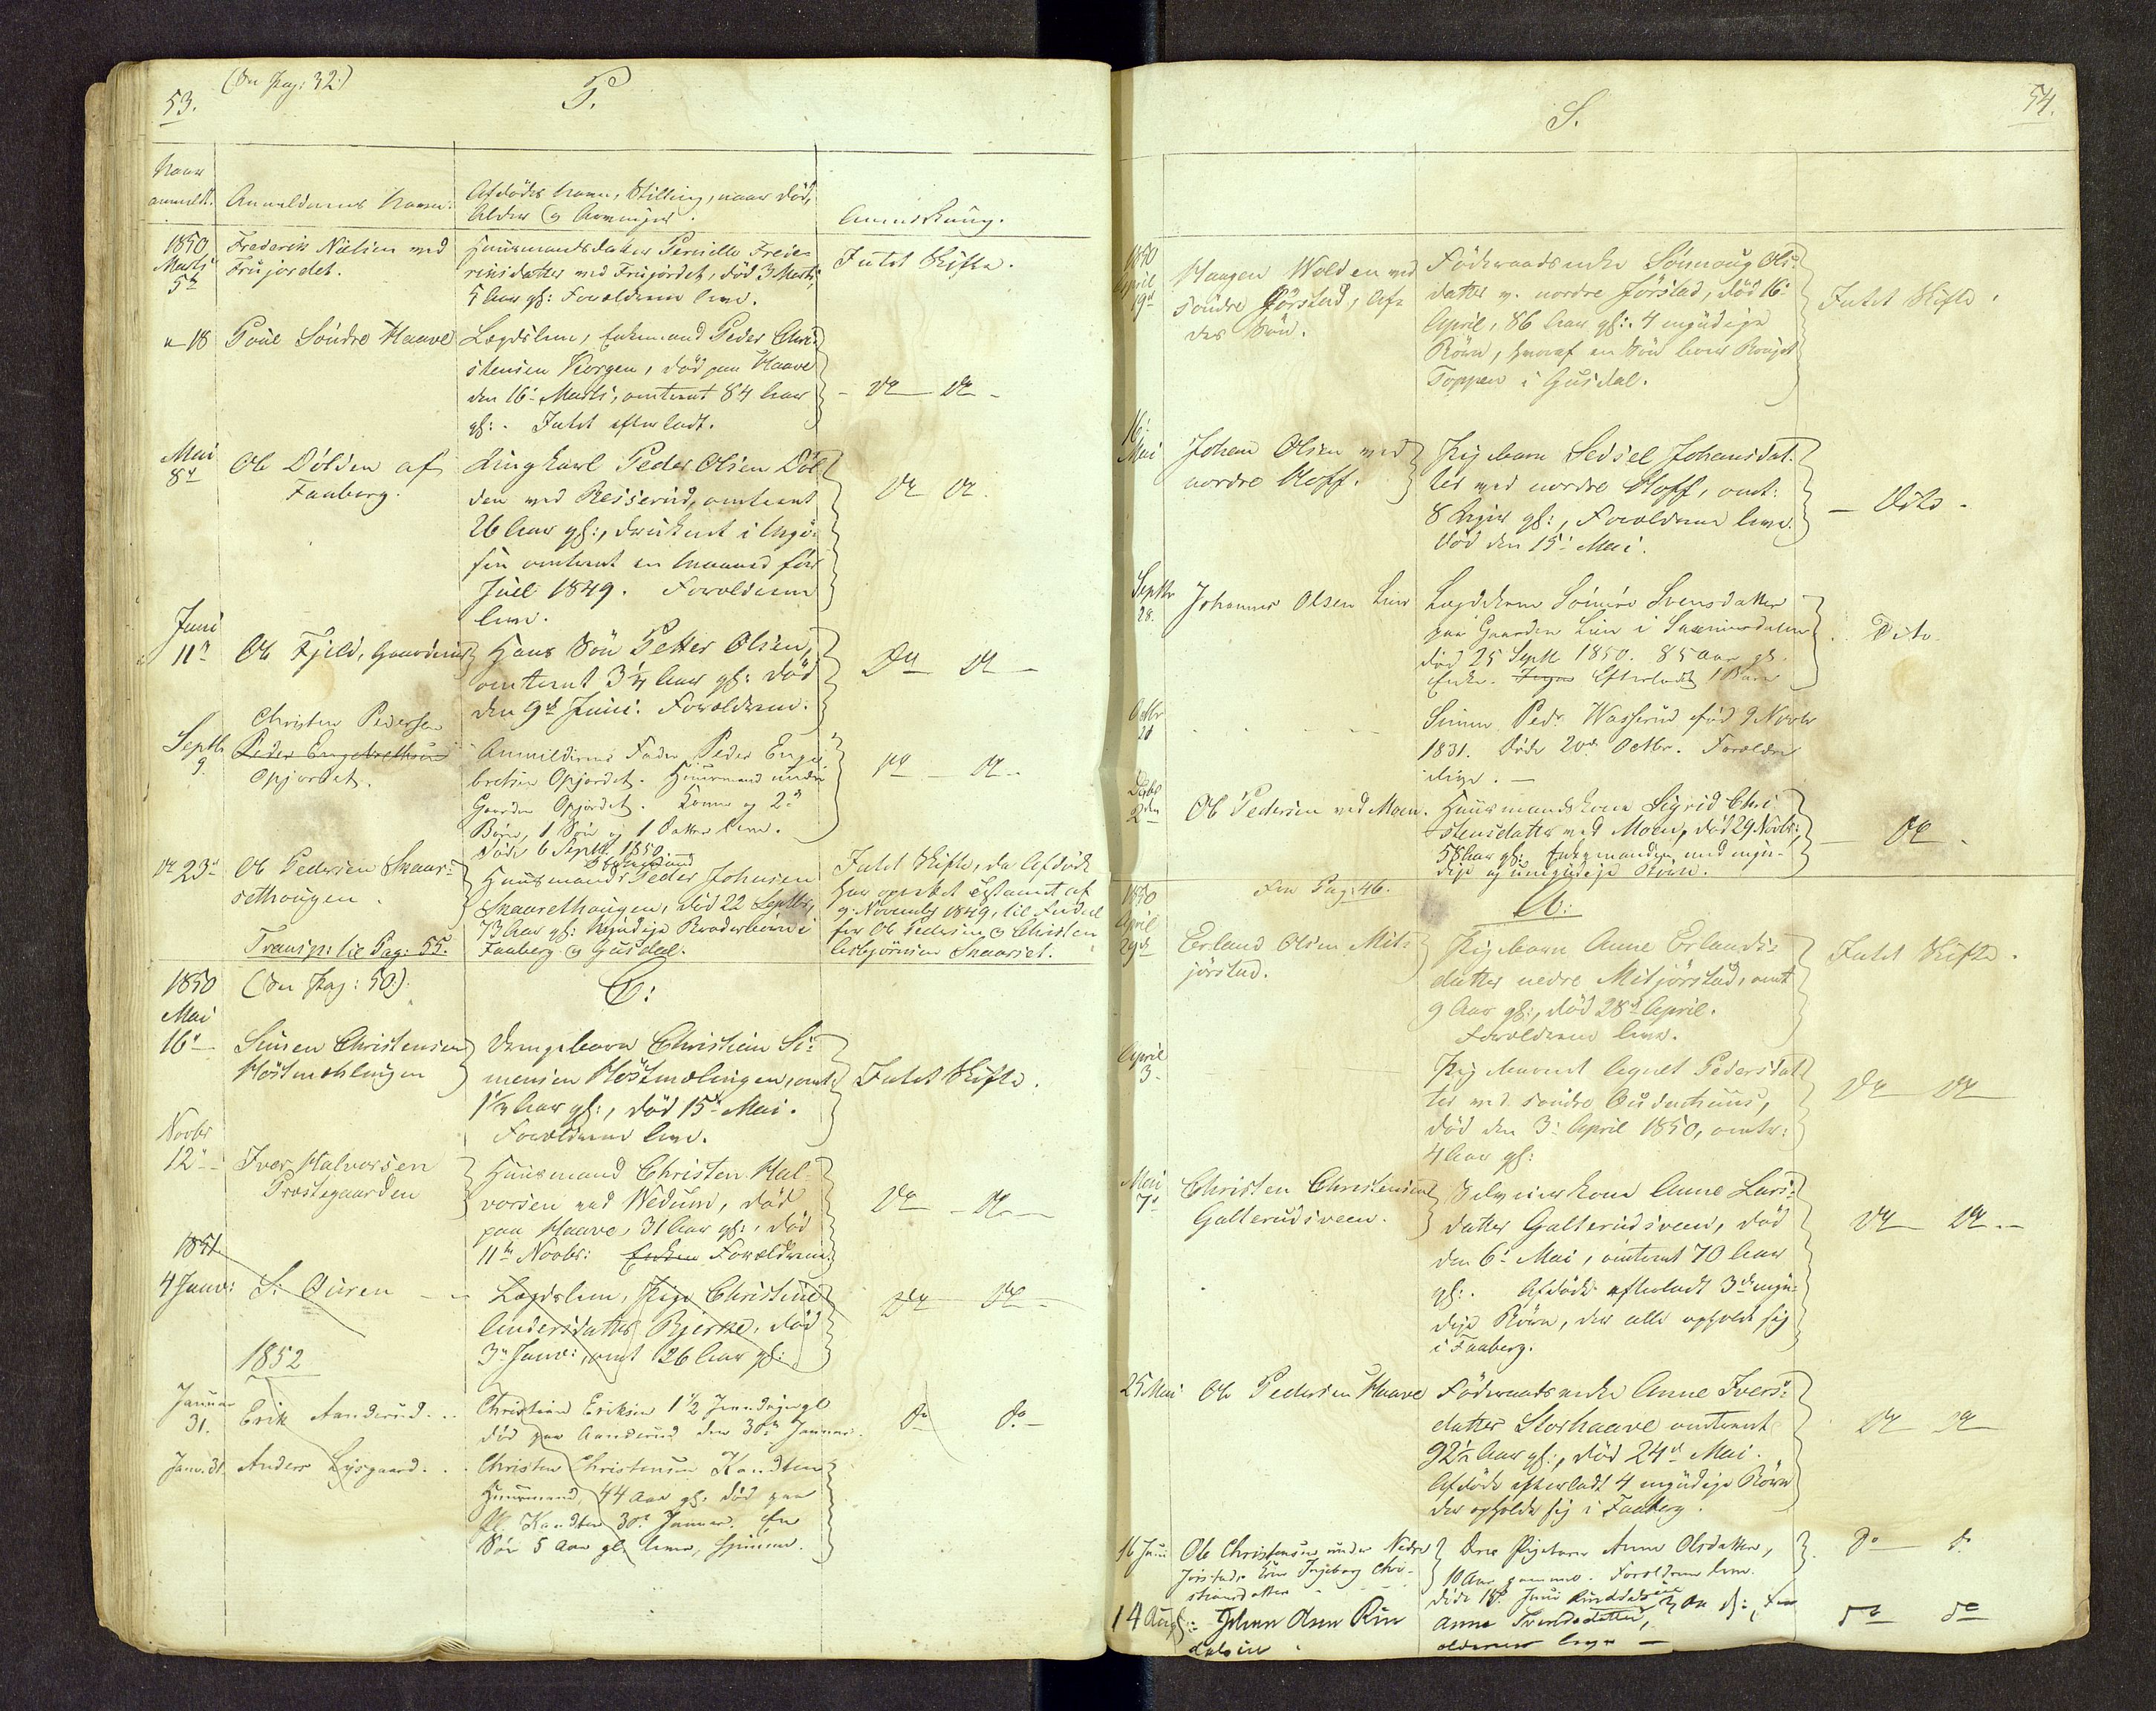 53.
(Fra Pag: 32.)
P.
Naar
anmeldt.
Anmelderens Navn.
Afdødes Navn, Stilling, naar død,
Alder og Arvinger.
Anmærkning.
1850
Marts
5te
Frederik Nielsen ved
Frujordet.
Huusmandsdatter Pernille Frede-
riksdatter ved Frujordet, død 3 Marts,
5 Aar gl: Forældrene leve.
Intet Skifte.
" 18
Poul Søndre Haave
Lægdslem, Enkemand Peder Chri-
stensen Korgen, død paa Haave
den 16de Marts, omtrent 84 Aar
gl:. Intet efterladt.
- do do -
Mai
8de
Ole Dølden af
Faaberg.
Ungkarl Peder Olsen Døl-
den ved Reiserud, omtrent
26 Aar gl:, druknet i
omtrent en Maaned før
Juul 1849. Forældrene
leve.
do do
Juni
11te
Ole Fjeld, Gaardmd
Hans Søn Petter Olsen,
omtrent 3 1/4 Aar gl: død
den 9de Juni. Forældrene.
do do -
Septb
9.
Christen Pedersen
Peder Engebrethsen
Opjordet.
Anmelderens Fader Peder Enge-
bretsen Opjordet. Huusmand under
Gaarden Opjordet. Kone og 2de
Børn, 1 Søn og 1 Datter leve.
døde 6 Septb. 1850.
do - do -
do 23de
Ole Pedersen Skaar-
sethaugen.
Huusmand Peder Johnsen
Skaarsethaugen, død 22 Septbr,
73 Aar gl: Myndige Broderbørn i
Faaberg og Gusdal.
Intet Skifte, da Afdøde
har oprettet Testament af
9. November 1849, til Fordeel
for Ole Pedersen og Christen
Asbjørnsen Skaarset.
Transp: til Pag: 55.
1850
(Fra Pag: 50.)
C:
Mai
16de
Simen Christensen
Høstmælingen
Drengebarn Christian Si-
mensen Høstmælingen, omt:
1 1/2 Aar gl:, død 15de Mai.
Forældrene leve.
Intet Skifte.
Novbr
12te
Iver Halvorsen
Præstegaarden
Huusmand Christen Hal-
vorsen ved Wedum, død
paa Haave, 31 Aar gl:, død
11te Novbr: Enken Forældrene
do - do -
1851
4 Janr:
S: Auren
Lægdslem, Pige Christine
Andersdatter Bjerke, død
3de Janr:, omt 26 Aar gl:
do do -
1852
Januar
31.
Erik Aanderud..
Christian Eriksen 1 1/2
død paa Aanderud den 30te Januar.
do do -
Janr. 31
Anders Lysgaard..
Christen Christensen Kandten
Huusmand, 44 Aar gl: død paa
Kandten 30te Januar. En
Søn 5 Aar gl. leve, Simen.
54.
S.
1850
April
19de
Haagen Wolden ved
søndre Jørstad, Afd-
des Søn.
Føderaadsenke Sønnoug Ols-
datter n. nordre Jørstad, død 16de
April, 86 Aar gl:. 4 myndige
Børn, hvoraf en Søn boer
Toppen i Gusdal.
Intet Skifte.
16de
Mai
Johan Olsen ved
nordre Hoff.
Pigebarn Sedsel Johansdat-
ter ved nordre Hoff, omt:
8 Uger gl:, Forældrene leve.
død den 15de Mai.
- Dito -
Septbr
28.
Johannes Olsen Lien
Lægdslem Svensdatter
paa Gaarden Lien i
død 25 Septb 1850. 85 Aar gl.
Enke. Ingen Efterladt 1 Barn
Dito
Octbr
21
Simen Peders. Wasserud født 9 Novbr
1831. Døde 20de Octbr. Forældre
i live. -
Decbr
2den
Ole Pedersen ved Moen.
Huusmandskone Sigrid Chri-
stensdatter ved Moen, død 29 Novbr:,
58 Aar gl: Enkemanden med myn-
dige og umyndige Børn.
- do -
1850
Fra Pag: 46.
A:
April
29de
Erland Olsen Mit-
jørstad.
Pigebarn Anne Erlands-
datter nedre Mitjørstad, omt
9 Aar gl:, død 28de April.
Forældrene leve.
Intet Skifte.
April
3.
Pigebarnet Agnet Pedersdat-
ter ved søndre
død den 3de April 1850, omtr:
4 Aar gl:
do do
Mai
7de
Christen Christensen
Galterudsveen.
Selveierkone Anne Lars-
datter Galterudsveen, død
den 6te Mai, omtrent 70 Aar
gl:. Afdøde efterladt 3de myn-
dige Børn, der alle opholde sig
i Faaberg.
do do -
25 Mai
Ole Pedersen Haave
Føderaadsenke Anne Ivers-
datter Storhaave omtrent
92 1/2 Aar gl:, død 24de Mai.
Afdøde efterladt 4 myndige Børn
der opholde sig i Faaberg.
do do
16 Juni
Ole Christensen under Nedre
Jørstad. Enke Ingeborg Chri-
stiansdatter
Deres Pigebarn Anne Olsdatter,
10 Aar gammel. Forældrene leve.
døde 15de Juni
do do
14 Aug:
Johan Olsen Rin-
dalseie
Anne gl:, For-
ældrene leve -
do do